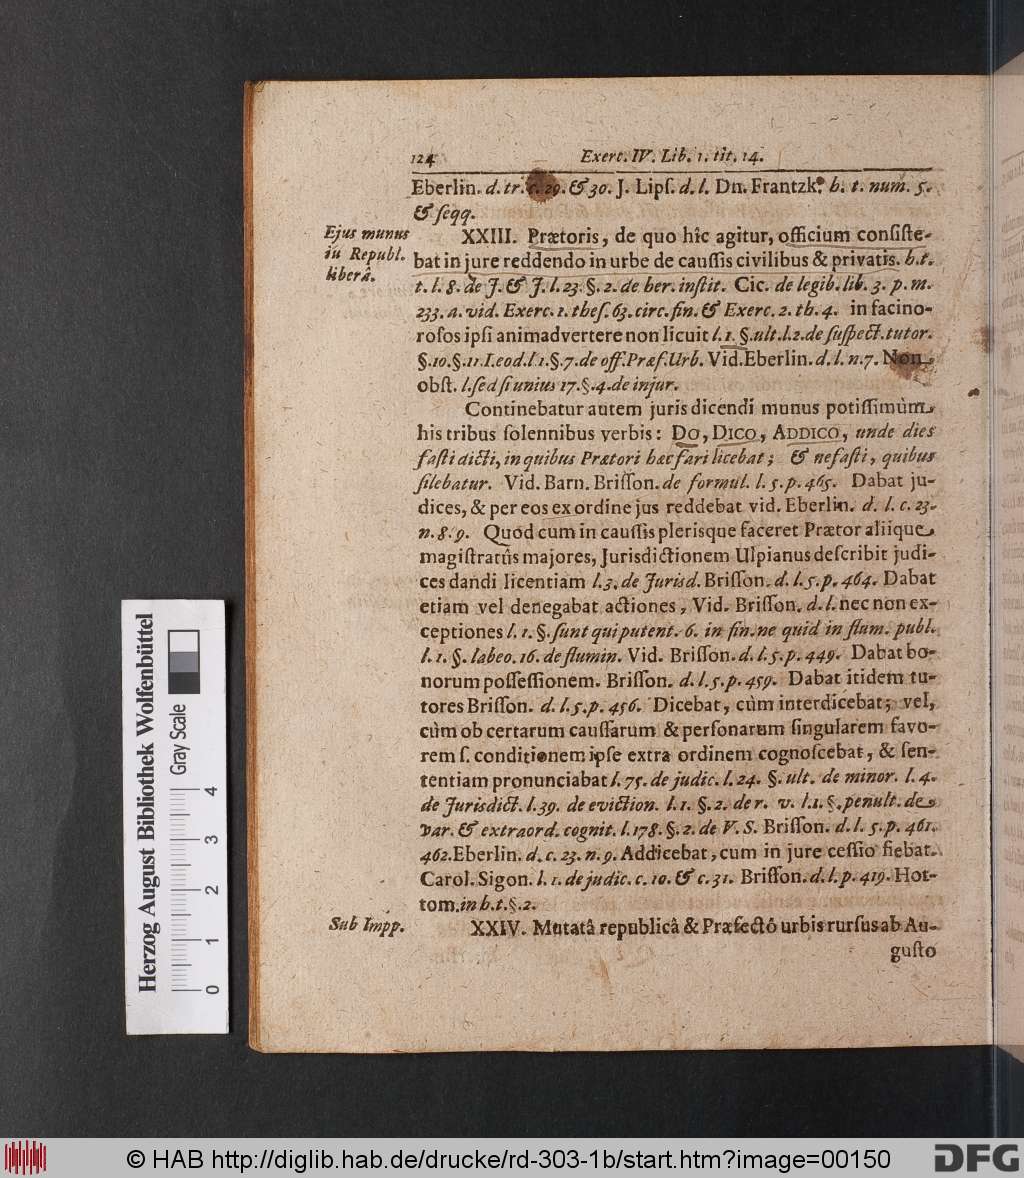 124 Exerc. IV. Lib. 1. tit. 14.
Eberlin. d. tr. c. 29. & 30. J. Lipſ. d. l. Dn. Frantzk. h. t. num. 5.
& ſeqq.
Ejus munus
in Republ.
liberâ.
XXIII. Prætoris, de quo hîc agitur, officium conſiſte-
bat in jure reddendo in urbe de cauſſis civilibus & privatis. h. t.
t. l. 8. de J. & J. l. 23. §. 2. de her. inſtit. Cic. de legib. lib. 3. p. m.
233. a. vid. Exerc. 1. theſ. 63. circ. fin. & Exerc. 2. th. 4. in facino-
roſos ipſi animadvertere non licuit l. 1. §. ult. l. 2. de ſuſpect. tutor.
§. 10. §. 11. I. eod. l. 1. §. 7. de off. Præf. Urb. Vid. Eberlin. d. l. n. 7. Non
obſt. l. ſed ſi unius 17. §. 4. de injur.
Continebatur autem juris dicendi munus potiſſimùm
his tribus ſolennibus verbis: DO, DICO, ADDICO, unde dies
faſti dicti, in quibus Prætori hæc fari licebat; & nefaſti, quibus
ſilebatur. Vid. Barn. Briſſon. de formul. l. 5. p. 465. Dabat ju-
dices, & per eos ex ordine jus reddebat vid. Eberlin. d. l. c. 23.
n. 8. 9. Quod cum in cauſſis plerisque faceret Prætor aliique
magiſtratûs majores, Jurisdictionem Ulpianus deſcribit judi-
ces dandi licentiam l. 3. de Jurisd. Briſſon. d. l. 5. p. 464. Dabat
etiam vel denegabat actiones, Vid. Briſſon. d. l. nec non ex-
ceptiones l. 1. §. ſunt qui putent. 6. in fin. ne quid in flum. publ.
l. 1. §. labeo. 16. de flumin. Vid. Briſſon. d. l. 5. p. 449. Dabat bo-
norum poſſeſſionem. Briſſon. d. l. 5. p. 459. Dabat itidem tu-
tores Briſſon. d. l. 5. p. 456. Dicebat, cùm interdicebat; vel,
cùm ob certarum cauſſarum & perſonarum ſingularem favo-
rem ſ. conditionem ipſe extra ordinem cognoſcebat, & ſen-
tentiam pronunciabat l. 75. de judic. l. 24. §. ult. de minor. l. 4.
de Jurisdict. l. 39. de eviction. l. 1. §. 2. de r. v. l. 1. §. penult. de
var. & extraord. cognit. l. 178. §. 2. de V. S. Briſſon. d. l. 5. p. 461.
462. Eberlin. d. c. 23. n. 9. Addicebat, cum in jure ceſſio fiebat.
Carol. Sigon. l. 1. de judic. c. 10. & c. 31. Briſſon. d. l. p. 419. Hot-
tom. in h. t. §. 2.
Sub Impp.
XXIV. Mutatâ republicâ & Præfectô urbis rurſus ab Au-
guſto
Herzog August Bibliothek Wolfenbüttel
Gray Scale
0 1 2 3 4
© HAB http://diglib.hab.de/drucke/rd-303-1b/start.htm?image=00150
DFG